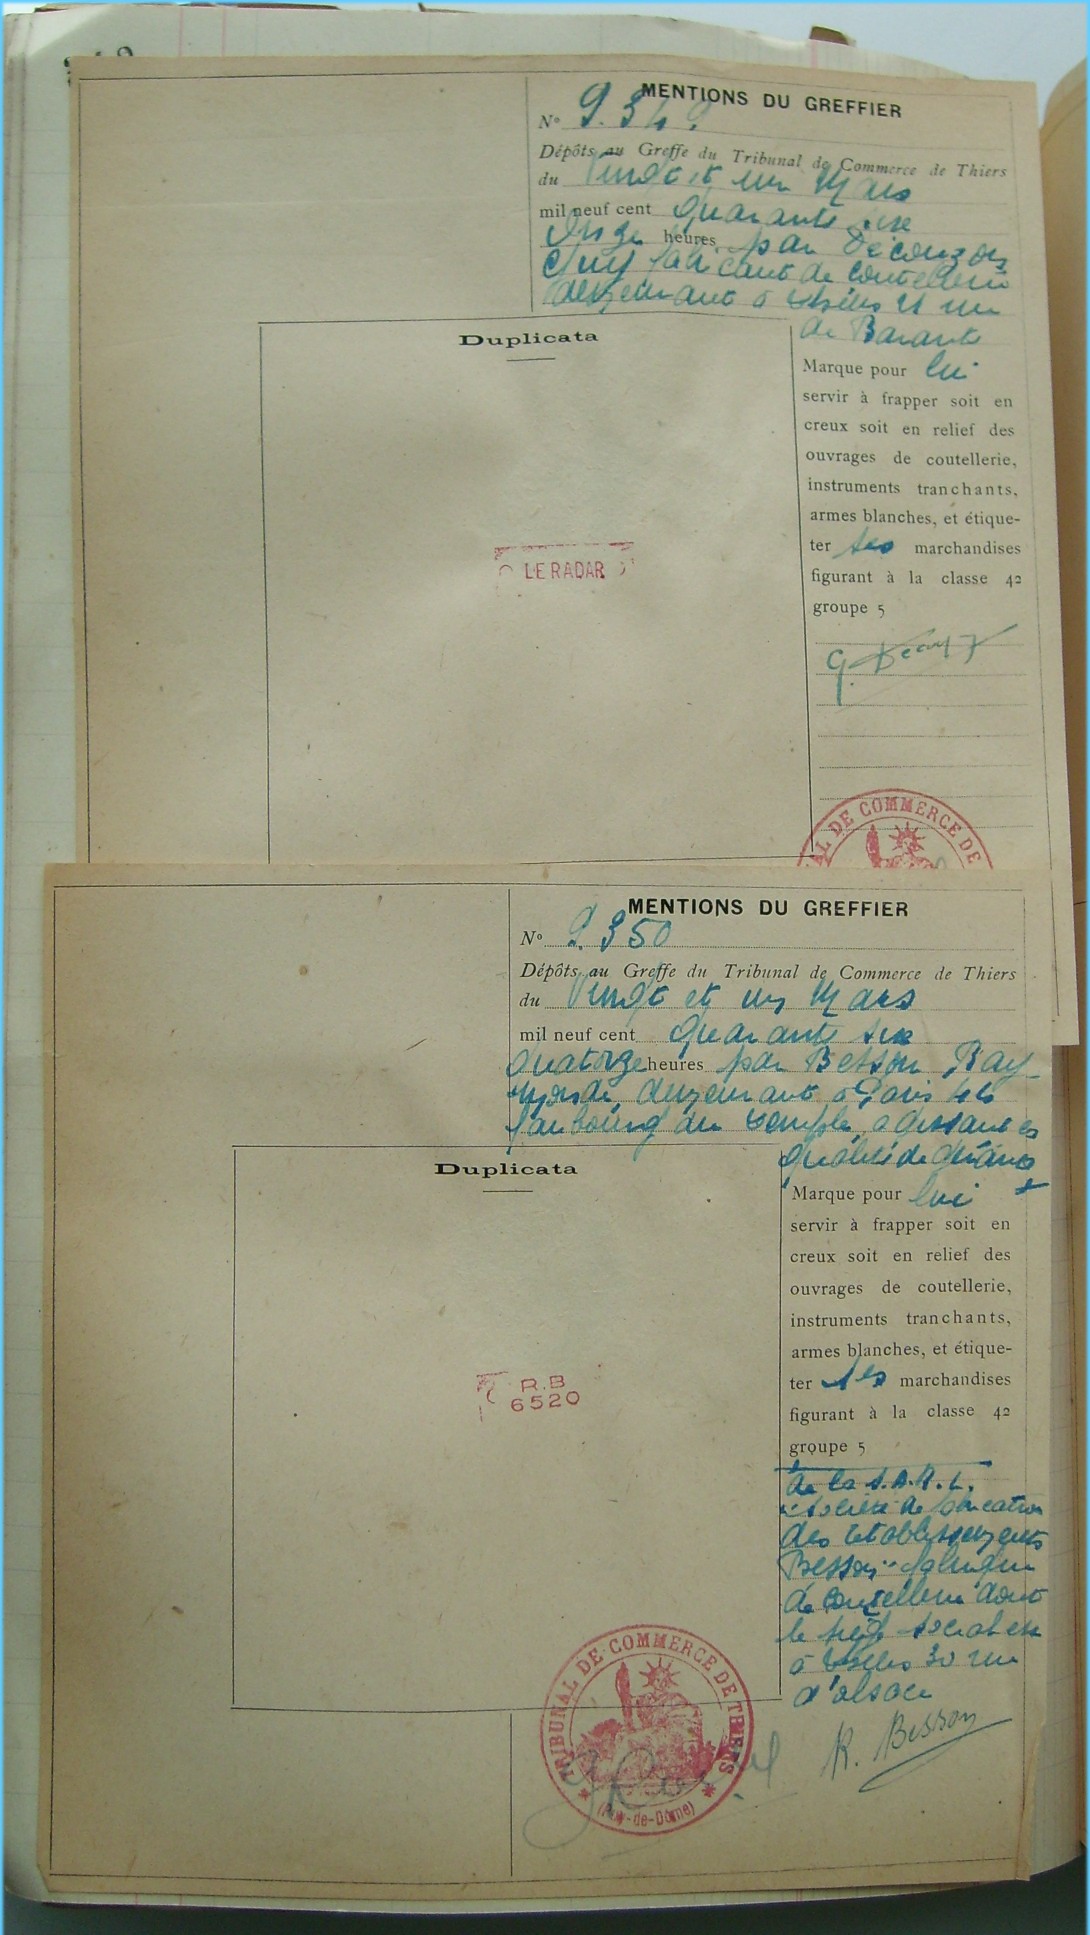 MENTIONS DU GREFFIER
N° 9.349
Dépôts au Greffe du Tribunal de Commerce de Thiers
du Vingt et un Mars
mil neuf cent quarante six
Onze heures par Decouzon
Guy fabricant de coutellerie
demeurant à Thiers 21 rue
de Barante
Duplicata
Marque pour lui
servir à frapper soit en
creux soit en relief des
ouvrages de coutellerie,
instruments tranchants,
armes blanches, et étique-
ter ses marchandises
figurant à la classe 42
groupe 5
LE RADAR
G.
AL DE COMMERCE DE
MENTIONS DU GREFFIER
N° 9.350
Dépôts au Greffe du Tribunal de Commerce de Thiers
du Vingt et un Mars
mil neuf cent quarante six
quatorze heures par Besson Ray-
monde, demeurant à Paris
faubourg du temple, agissant es
qualité de gérance
Duplicata
Marque pour lui
servir à frapper soit en
creux soit en relief des
ouvrages de coutellerie,
instruments tranchants,
armes blanches, et étique-
ter ses marchandises
figurant à la classe 42
groupe 5
R.B
6520
de la S.A.R.L.
Société de
des Etablissements
Besson fabrique
de coutellerie dont
le siège social est
à Thiers 30 rue
d'alsace
R. Besson
TRIBUNAL DE COMMERCE DE THIERS
(Puy-de-Dôme)